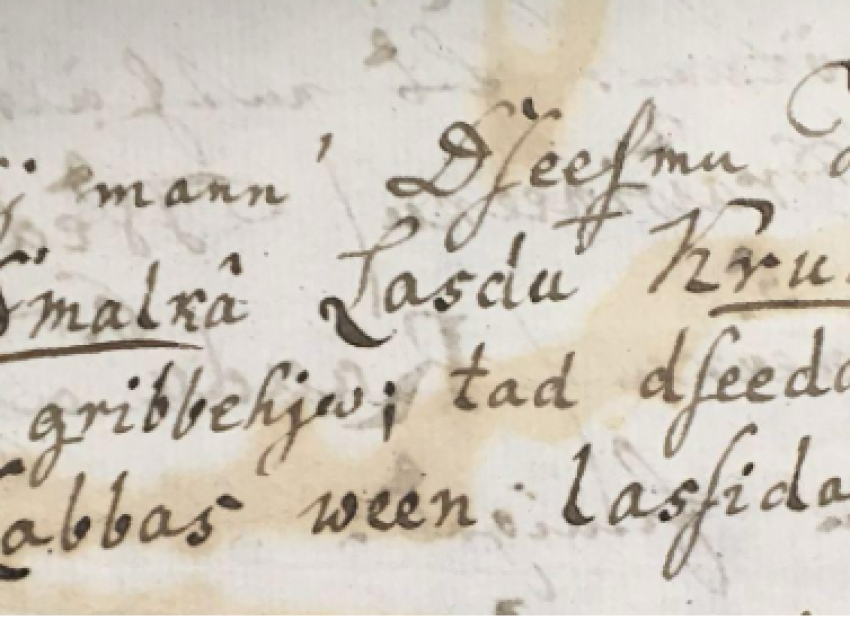 mann' Dſeeſmu
Smalkâ Lasdu Kru
gribbehjw; tad dſeeda
Labbas ween laſsida